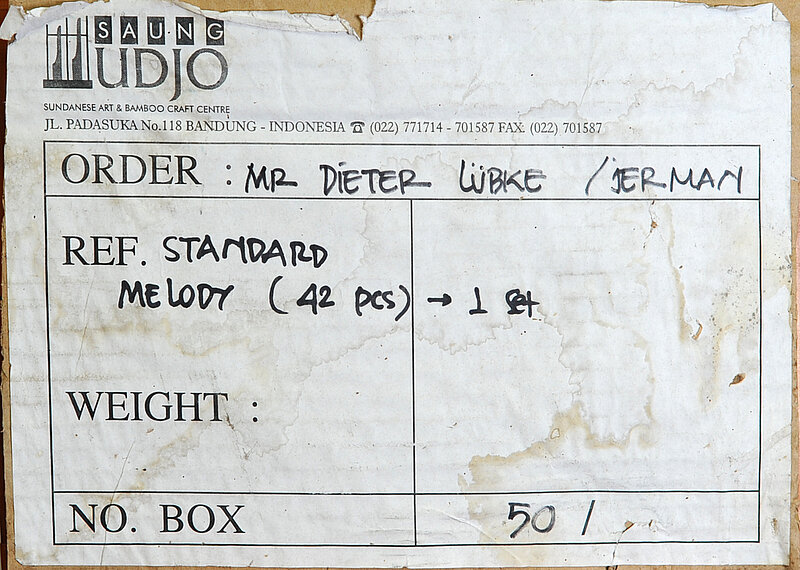 SAUNG
UDJO
SUNDANESE ART & BAMBOO CRAFT CENTRE
JL. PADASUKA No.118 BANDUNG - INDONESIA ☎ (022) 771714 - 701587 FAX. (022) 701587
ORDER : MR DIETER LÜBKE / JERMAN
REF. STANDARD
MELODY ( 42 pcs) → 1 set
WEIGHT :
NO. BOX 50 /